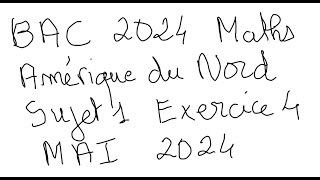 BAC 2024 Maths
Amérique du Nord
Sujet 1 Exercice 4
MAI 2024